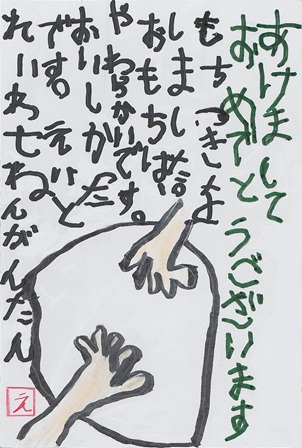 あけまして
おめでとうございます
もちつきを
しました
おもちは
やわらかいです。
おいしかた
です。えいと
れいわ七ねんがんたん
え